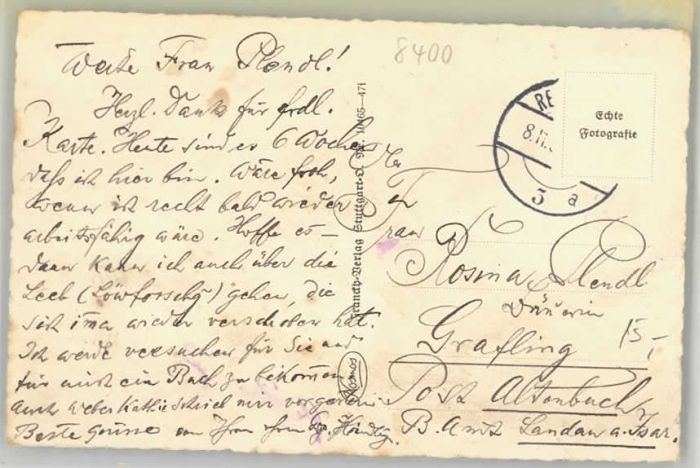 Werte Frau Plendl!
Herzl. Dank für frdl.
Karte. Heute sind es 6 Wochen
daß ich hier bin. Wäre froh,
wenn ich recht bald wieder
arbeitsfähig wäre. Hoffe es –
dann kann ich auch über die
gehen, die
sich wieder verschoben hat.
Ich werde versuchen für Sie und
für mich ein Buch zu bekommen
auch schrieb mir vorgestern
Beste Grüsse von Ihrem
8400
Franckh-Verlag Stuttgart-O.
Kosmos
RE
8.11.
3 a
Echte
Fotografie
Frau
Rosina Plendl
Bäuerin
15,-
Grafling
Post Altenbuch
B. Amt Landau a. Isar.